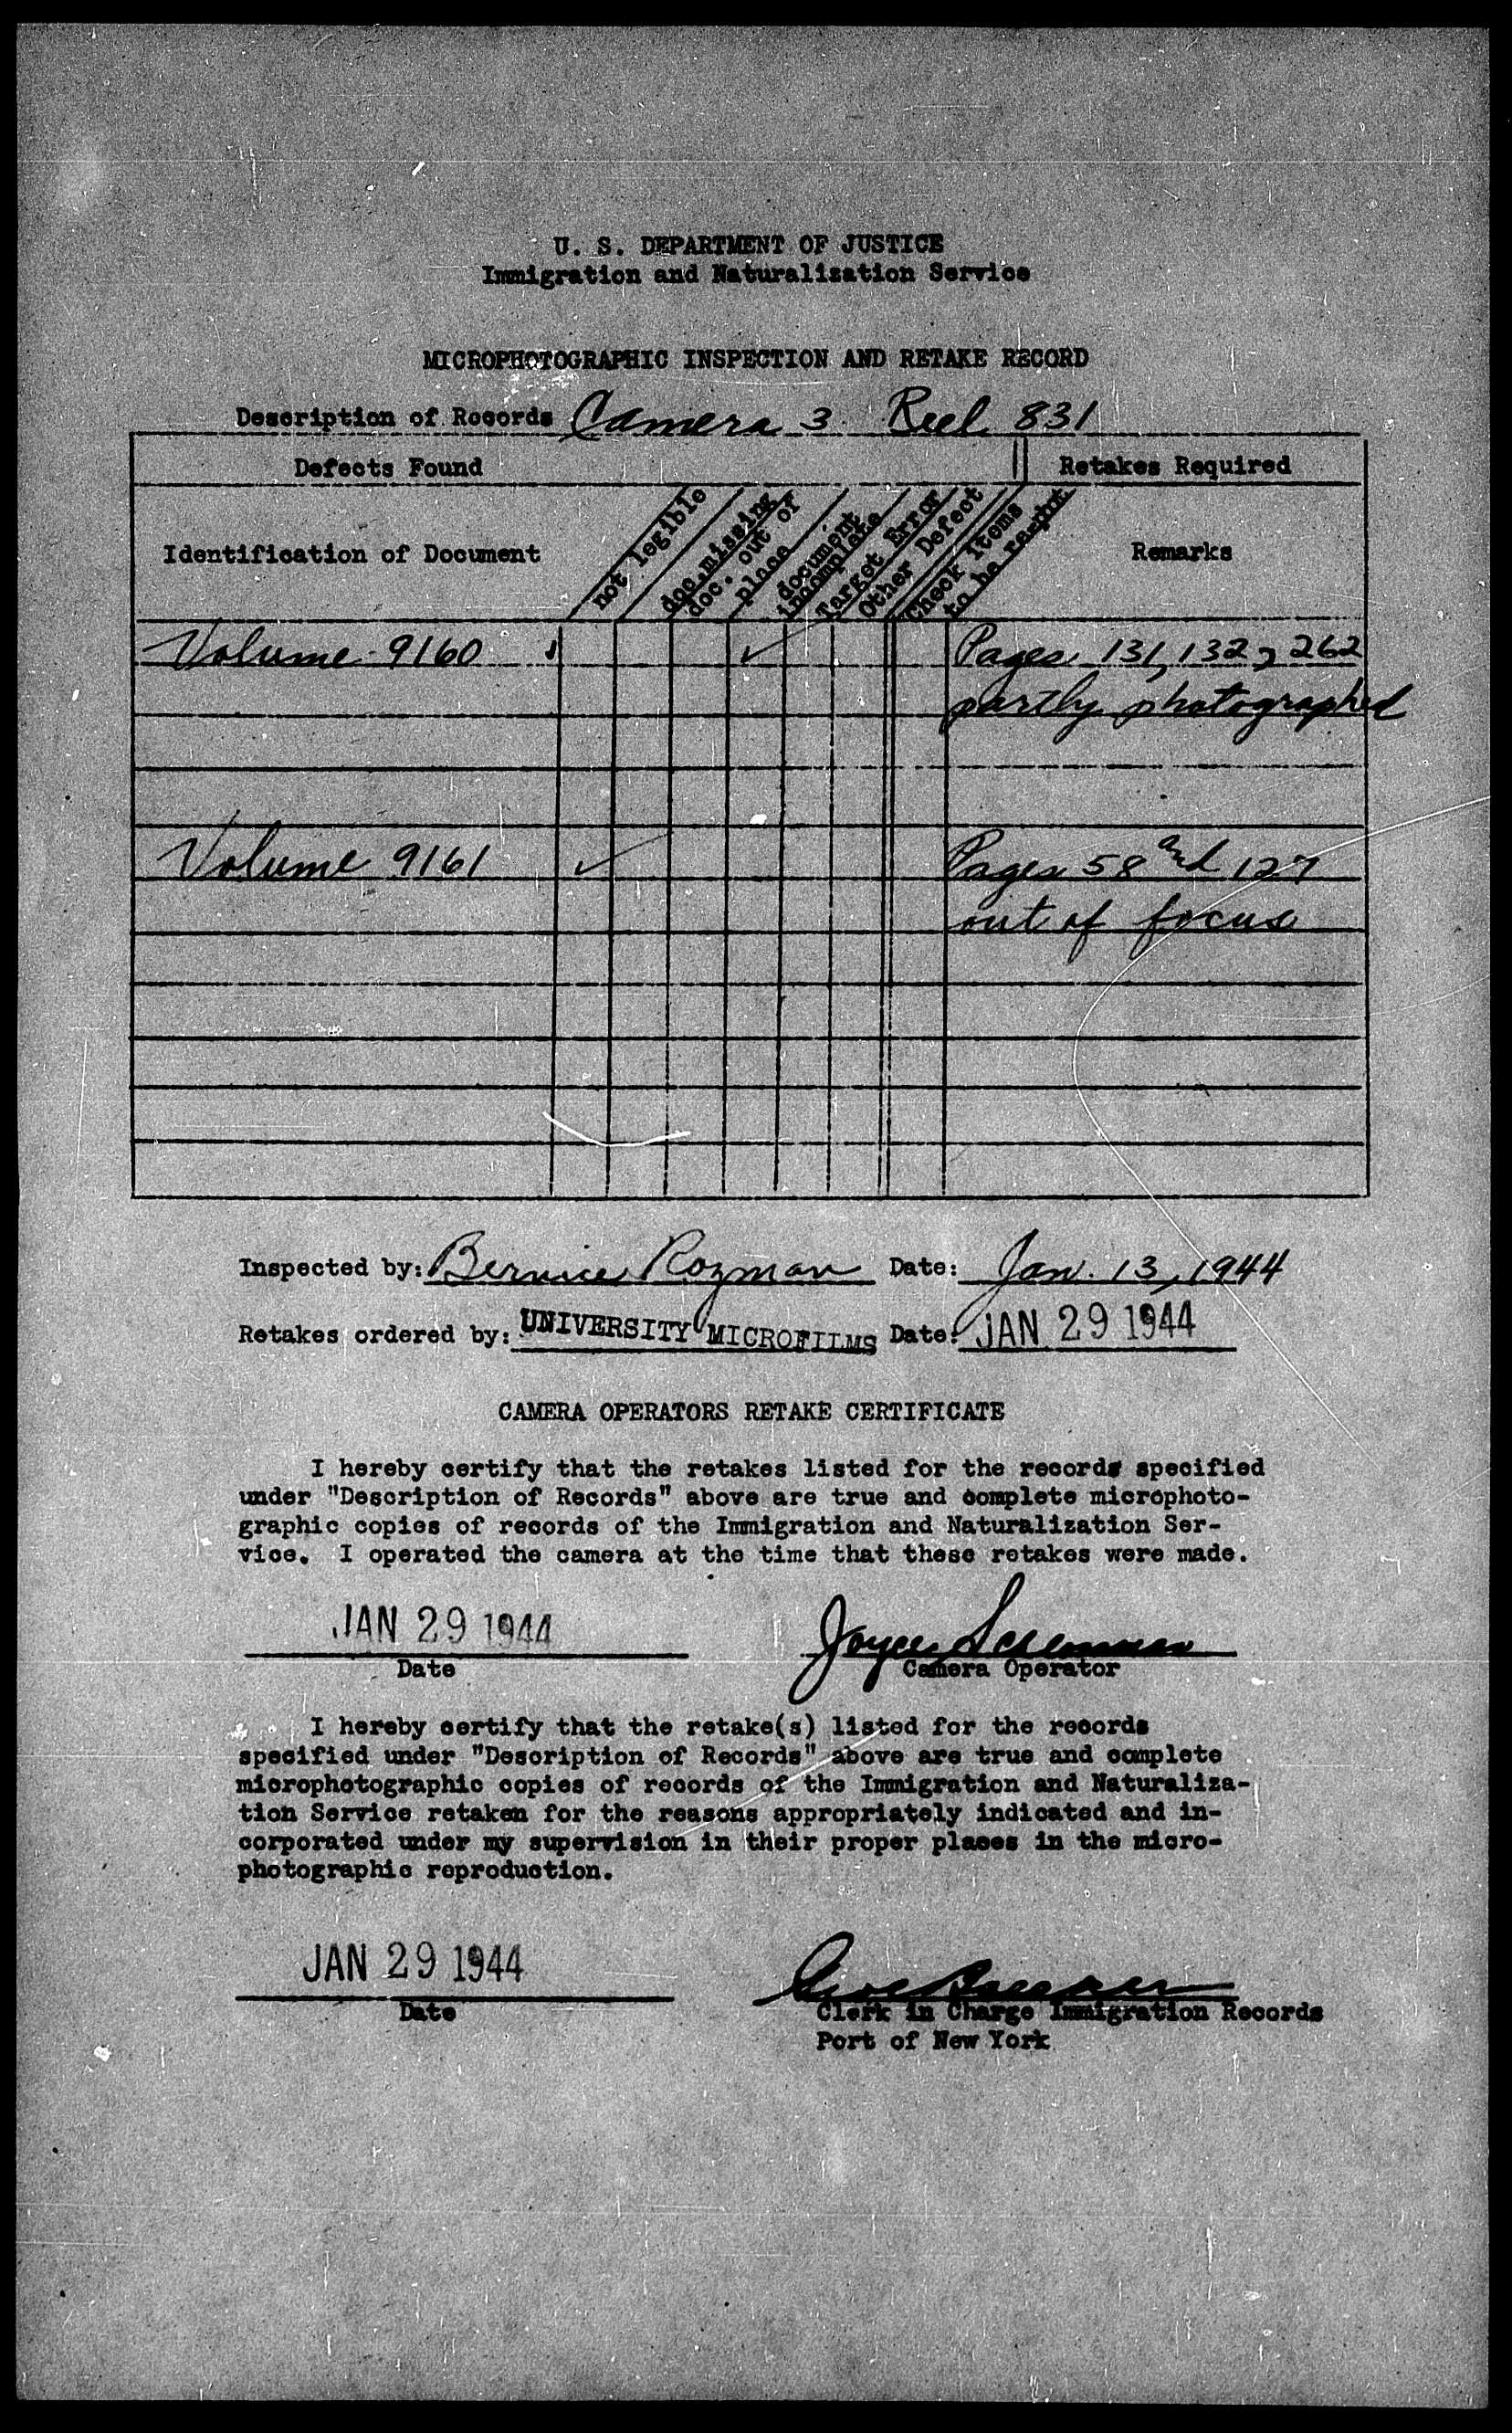 U. S. DEPARTMENT OF JUSTICE
Immigration and Naturalization Service
MICROPHOTOGRAPHIC INSPECTION AND RETAKE RECORD
Description of Records Camera 3 Reel 831
Defects Found Retakes Required
Identification of Document
not legible
doc. missing
doc. out of
place
document
incomplete
Target Error
Other Defect
Check Items
to be reshot
Remarks
Volume 9160 ✓ Pages 131, 132, 262
partly photographed
Volume 9161 ✓ Pages 58 and 127
out of focus
Inspected by: Bernice Rozman Date: Jan. 13, 1944
Retakes ordered by: UNIVERSITY MICROFILMS Date: JAN 29 1944
CAMERA OPERATORS RETAKE CERTIFICATE
I hereby certify that the retakes listed for the records specified
under "Description of Records" above are true and complete microphoto-
graphic copies of records of the Immigration and Naturalization Ser-
vice. I operated the camera at the time that these retakes were made.
JAN 29 1944 Joyce
Date Camera Operator
I hereby certify that the retake(s) listed for the records
specified under "Description of Records" above are true and complete
microphotographic copies of records of the Immigration and Naturaliza-
tion Service retaken for the reasons appropriately indicated and in-
corporated under my supervision in their proper places in the micro-
photographic reproduction.
JAN 29 1944
Date Clerk in Charge Immigration Records
Port of New York